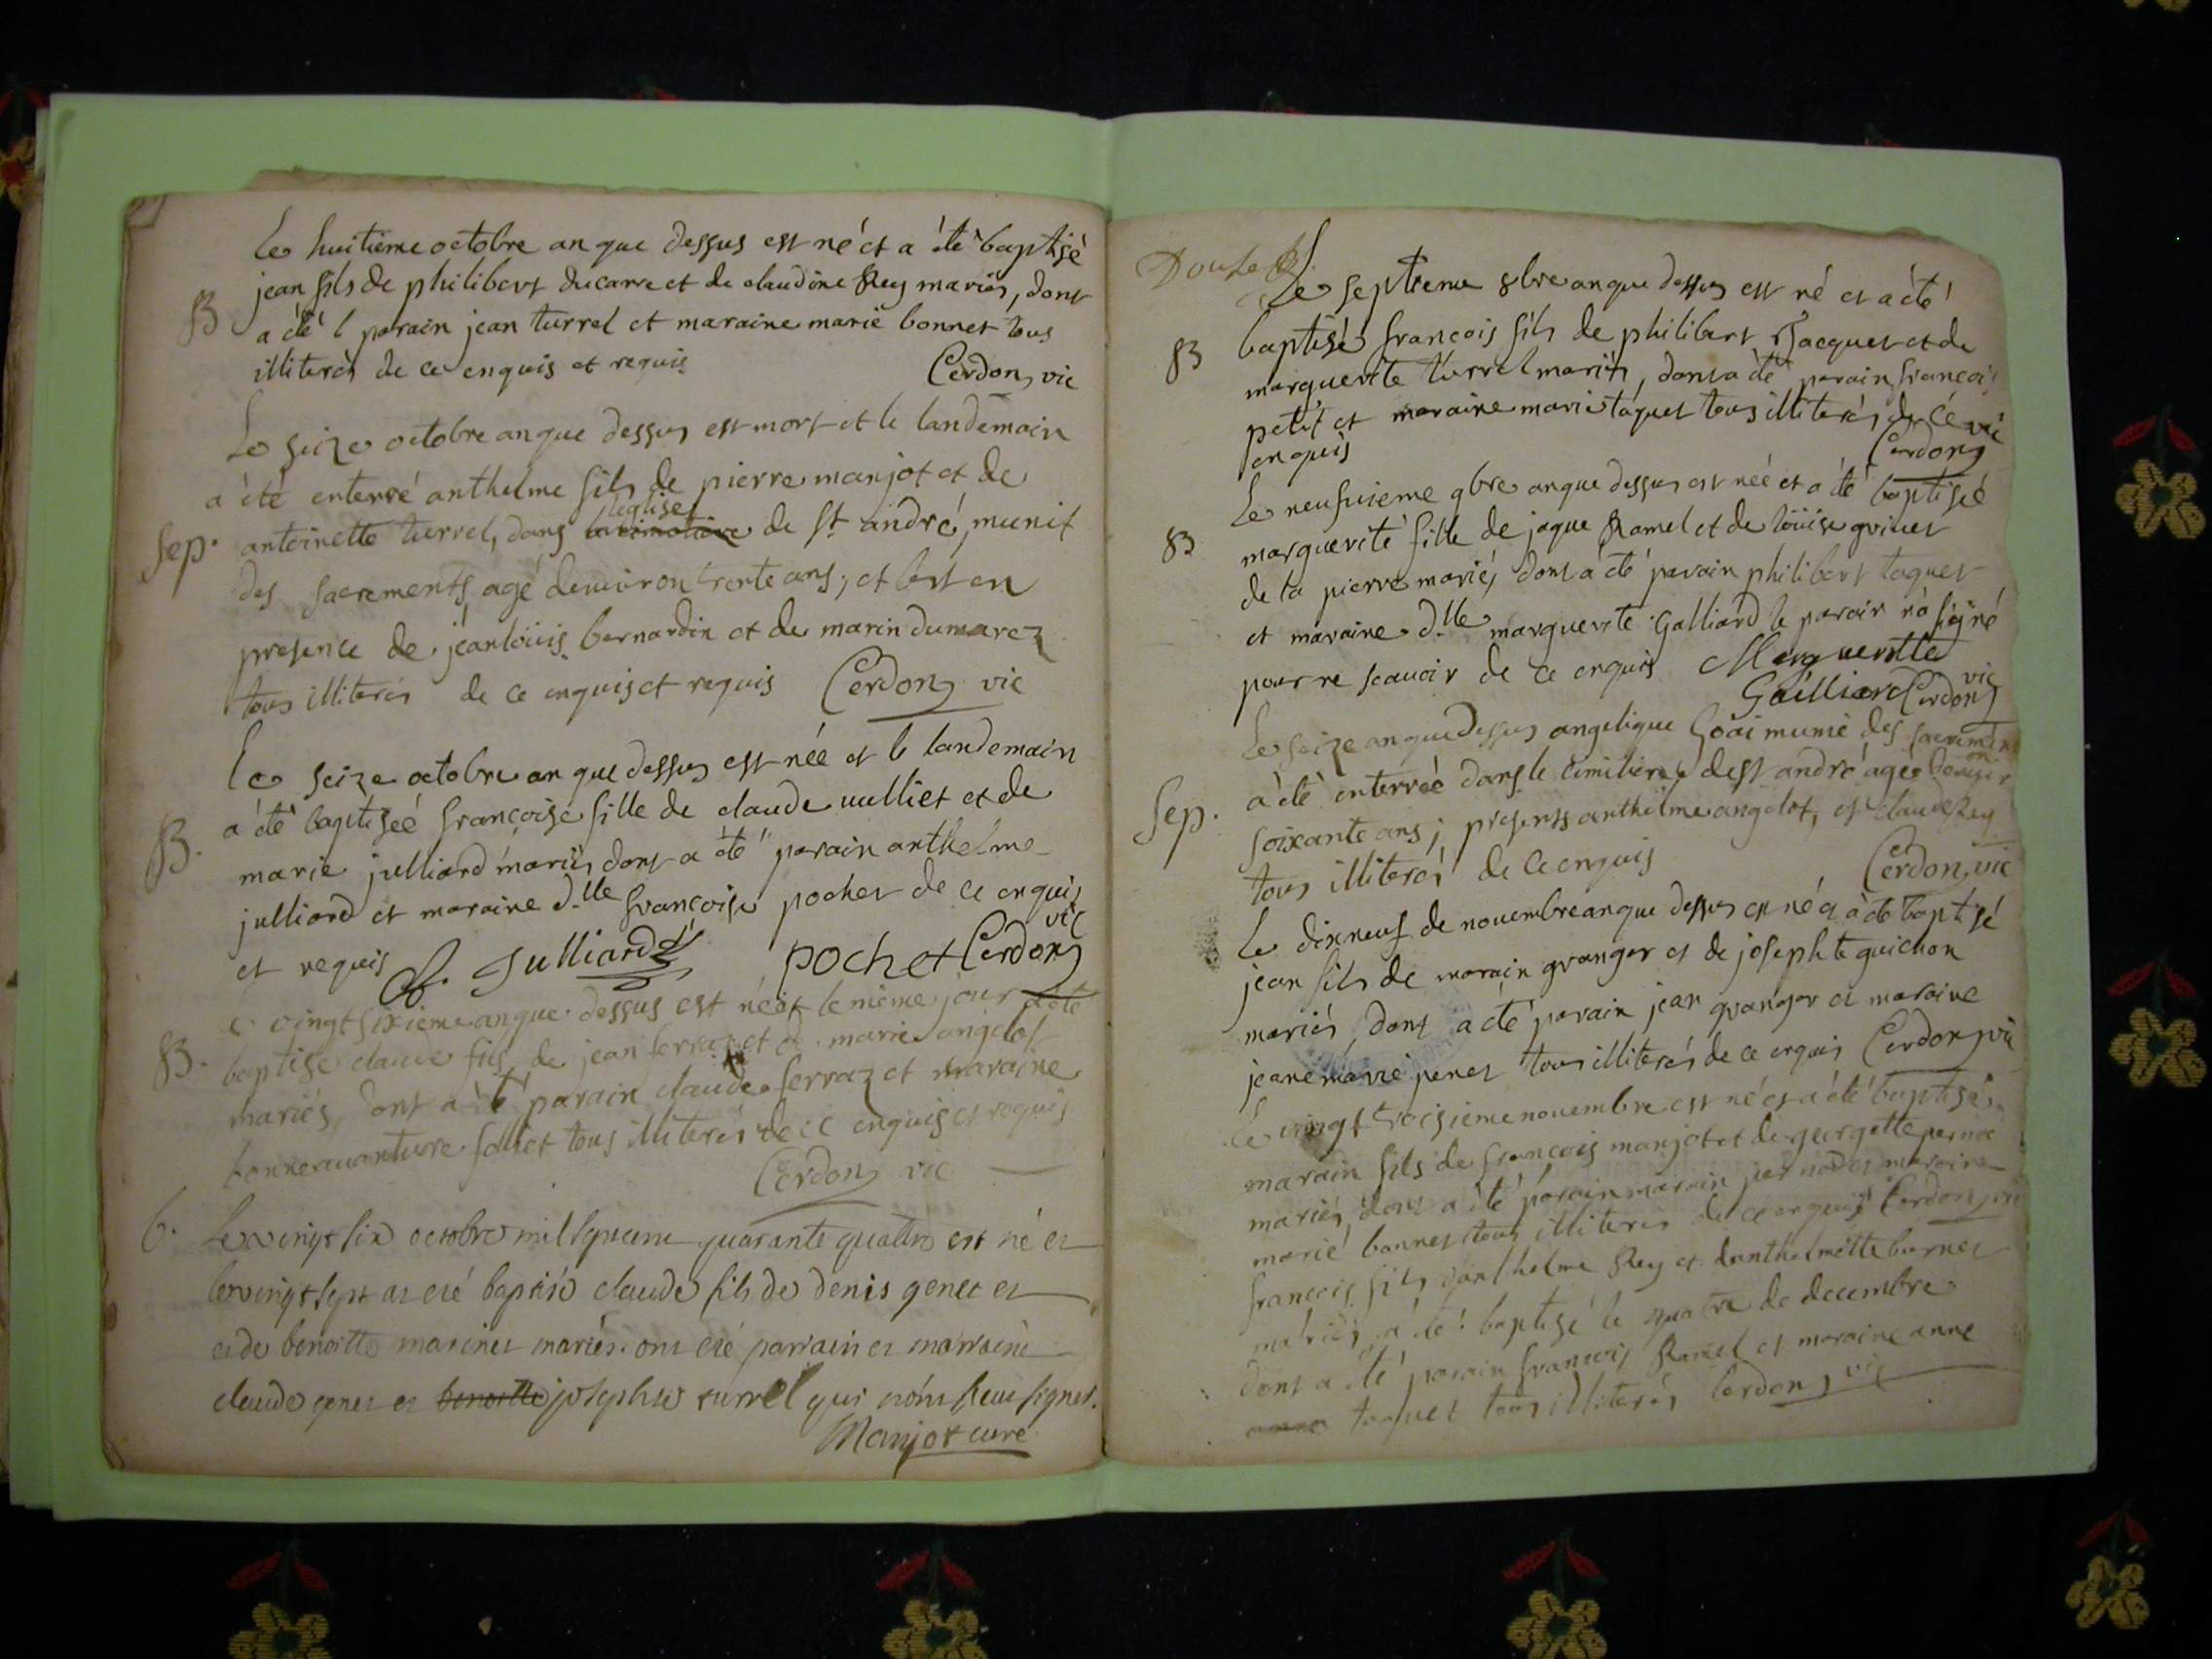 Le huitieme octobre an que dessus est né et a été baptisé
jean fils de philibert ducarre et de claudine Rey mariés, dont
B
a été l parain jean turrel et maraine marie bonnet tous
illiterés de ce enquis et requis Cerdon, vic
Le seize octobre an que dessus est mort et le landemain
a été enterré anthelme fils de pierre manjot et de
l'eglise
Sep. antoinette turrel, dans le cimetiere de St andré, munit
des sacrements agé denviron trente ans, et cest en
presence de jean loüis bernardin et de marin dumarez
tous illiterés de ce enquis et requis Cerdon vic
Le seize octobre an que dessus est née et le landemain
B. a été baptiseé françoise fille de claude vulliet et de
marie julliard mariés dont a été parain anthelme
julliard et maraine d.lle françoise pochet de ce enquis
et requis A. Julliard pochet Cerdon vic
e vingt sixieme an que dessus est né et le même jour a été
B. baptise claude fils de jean ferraz et de marie angelot
mariés, dont a été parain claude ferraz et maraine
bonneauanture tous illiterés de ce enquis et requis
Cerdon vic
b. Le vingt six octobre mil sept cent quarante quattre est né et
le vingt sept at eté baptisé claude fils de denis genet et
et de benoitte marinet mariés. ont eté parrain et marraine
claude genet et benoitte josephte turrel qui n'ont sceu signer.
Manjot curé
Double
Le septieme 8bre an que dessus est né et a été
B baptisé francois fils de philibert Jacquet et de
marguerite turrel mariés, dont a été parain francois
petit et maraine marie taquet tous illiterés de ce
enquis Cerdon vic
Le neufvieme 9bre an que dessus est née et a été baptiseé
B marguerite fille de jaque Ramel et de loüise
de la pierre mariés dont a été parain philibert taquet
et maraine d.lle marguerite Galliard le parain n'a signé
pour ne scauoir de ce enquis Marguerite
Gailliard Cerdon vic
Le seize an que dessus angelique munie des sacrements
Sep. a été enterreé dans le cimitiere de st andré ageé denviron
soixante ans, presents anthelme angelot, et claude Rey
tous illiterés de ce enquis Cerdon, vic
Le dixneuf de nouembre an que dessus est né et a été baptisé
jean fils de marain granger et de josephte guichon
mariés, dont a été parain jean granger et maraine
jeane marie tous illiterés de ce enquis Cerdon vic
Le vingt troisieme nouembre est né et a été baptisé
marain fils de francois manjot et de georgette pernod
mariés dont a été parain marain pernod et maraine
marie bonnet tous illiterés de ce enquis Cerdon, vic
francois fils danthelme Rey et danthelmette burnet
mariés a été baptisé le quatre de decembre
dont a été parain francois Ramel et maraine anne
anne taquet tous illiterés Cerdon, vic